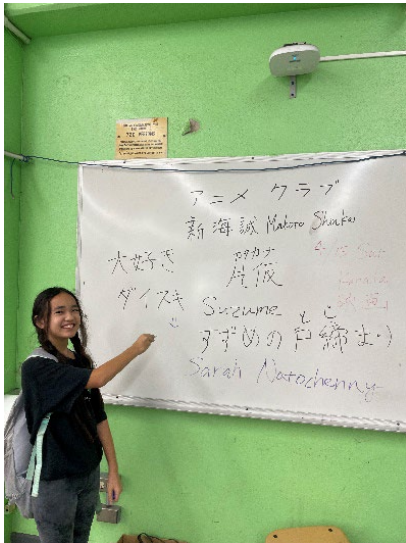 アニメ クラブ
新海誠 Makoto Shinkai
大好き
ダイスキ
カタカナ
片仮
4/15 Sat
映画
Suzume
とじ
すずめの戸締まり
Sarah Natochenny